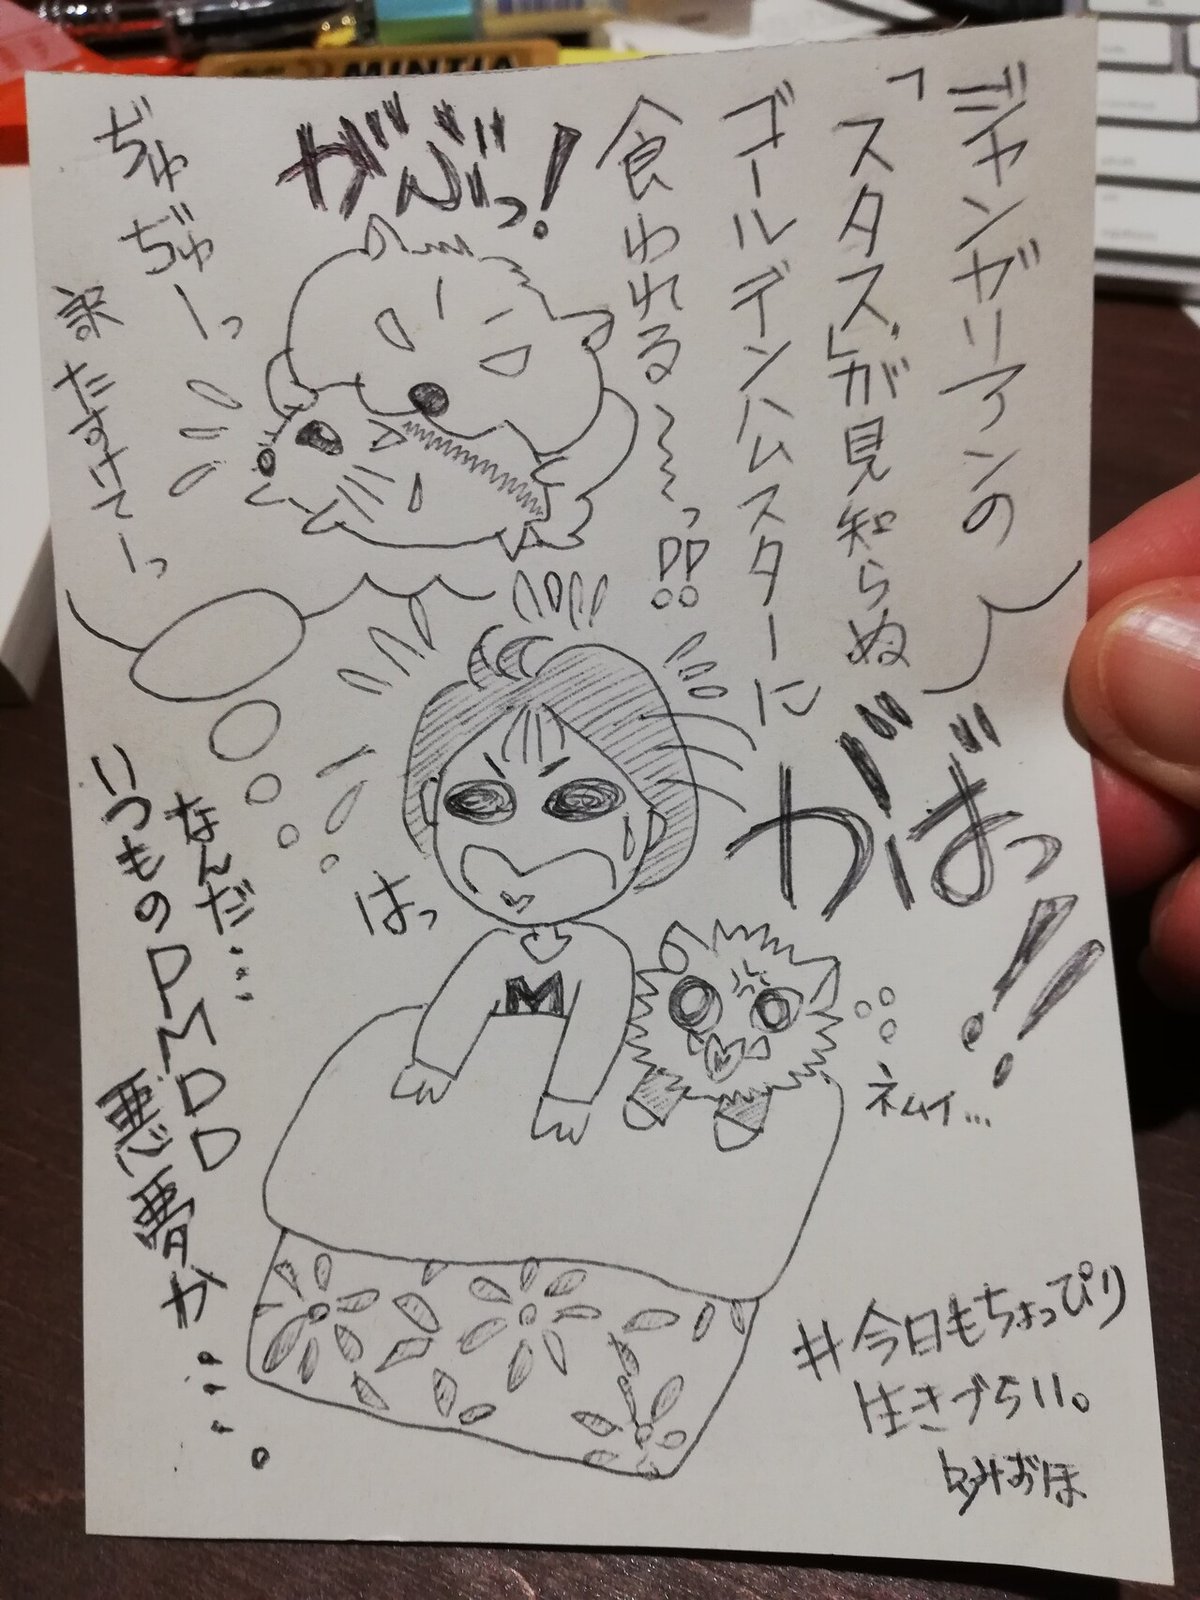 ジャンガリアンの
「スタスタ」が見知らぬ
ゴールデンハムスターに
食われる〜〜〜っ!!
がぶっ!
ぢゅ
ぢゅーっ
訳 たすけてーっ
がばっ!!
はっ
ネムイ...
なんだ……
いつものPMDD
悪夢か……。
#今日もちょっぴり
生きづらい。
byみおほ
MINTIA
M